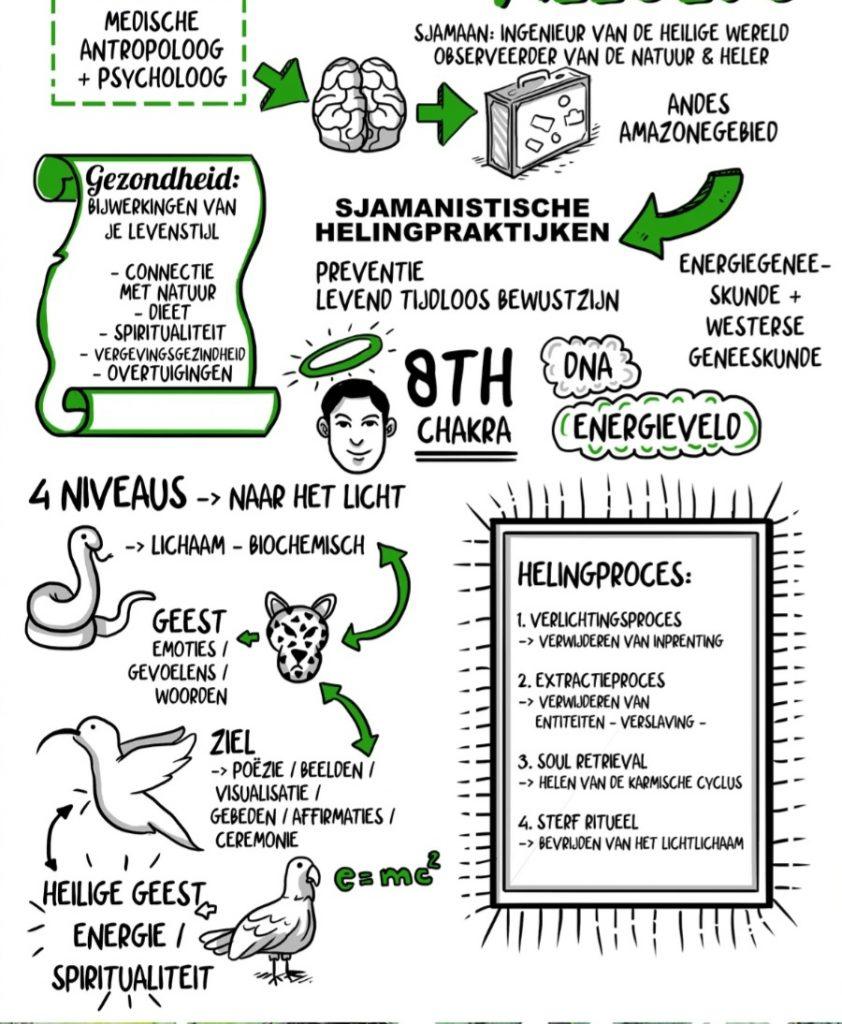 MEDISCHE
ANTROPOLOOG
+ PSYCHOLOOG
SJAMAAN: INGENIEUR VAN DE HEILIGE WERELD
OBSERVEERDER VAN DE NATUUR & HELER
ANDES
AMAZONEGEBIED
Gezondheid:
BIJWERKINGEN VAN
JE LEVENSTIJL
- CONNECTIE
MET NATUUR
- DIEET
- SPIRITUALITEIT
- VERGEVINGSGEZINDHEID
- OVERTUIGINGEN
SJAMANISTISCHE
HELINGPRAKTIJKEN
PREVENTIE
LEVEND TIJDLOOS BEWUSTZIJN
ENERGIEGENEE-
SKUNDE +
WESTERSE
GENEESKUNDE
8TH
CHAKRA
DNA
ENERGIEVELD
4 NIVEAUS -> NAAR HET LICHT
-> LICHAAM - BIOCHEMISCH
GEEST
EMOTIES /
GEVOELENS /
WOORDEN
ZIEL
-> POËZIE / BEELDEN /
VISUALISATIE /
GEBEDEN / AFFIRMATIES /
CEREMONIE
e=mc²
HEILIGE GEEST
ENERGIE /
SPIRITUALITEIT
HELINGPROCES:
1. VERLICHTINGSPROCES
-> VERWIJDEREN VAN INPRENTING
2. EXTRACTIEPROCES
-> VERWIJDEREN VAN
ENTITEITEN - VERSLAVING -
3. SOUL RETRIEVAL
-> HELEN VAN DE KARMISCHE CYCLUS
4. STERF RITUEEL
-> BEVRIJDEN VAN HET LICHTLICHAAM